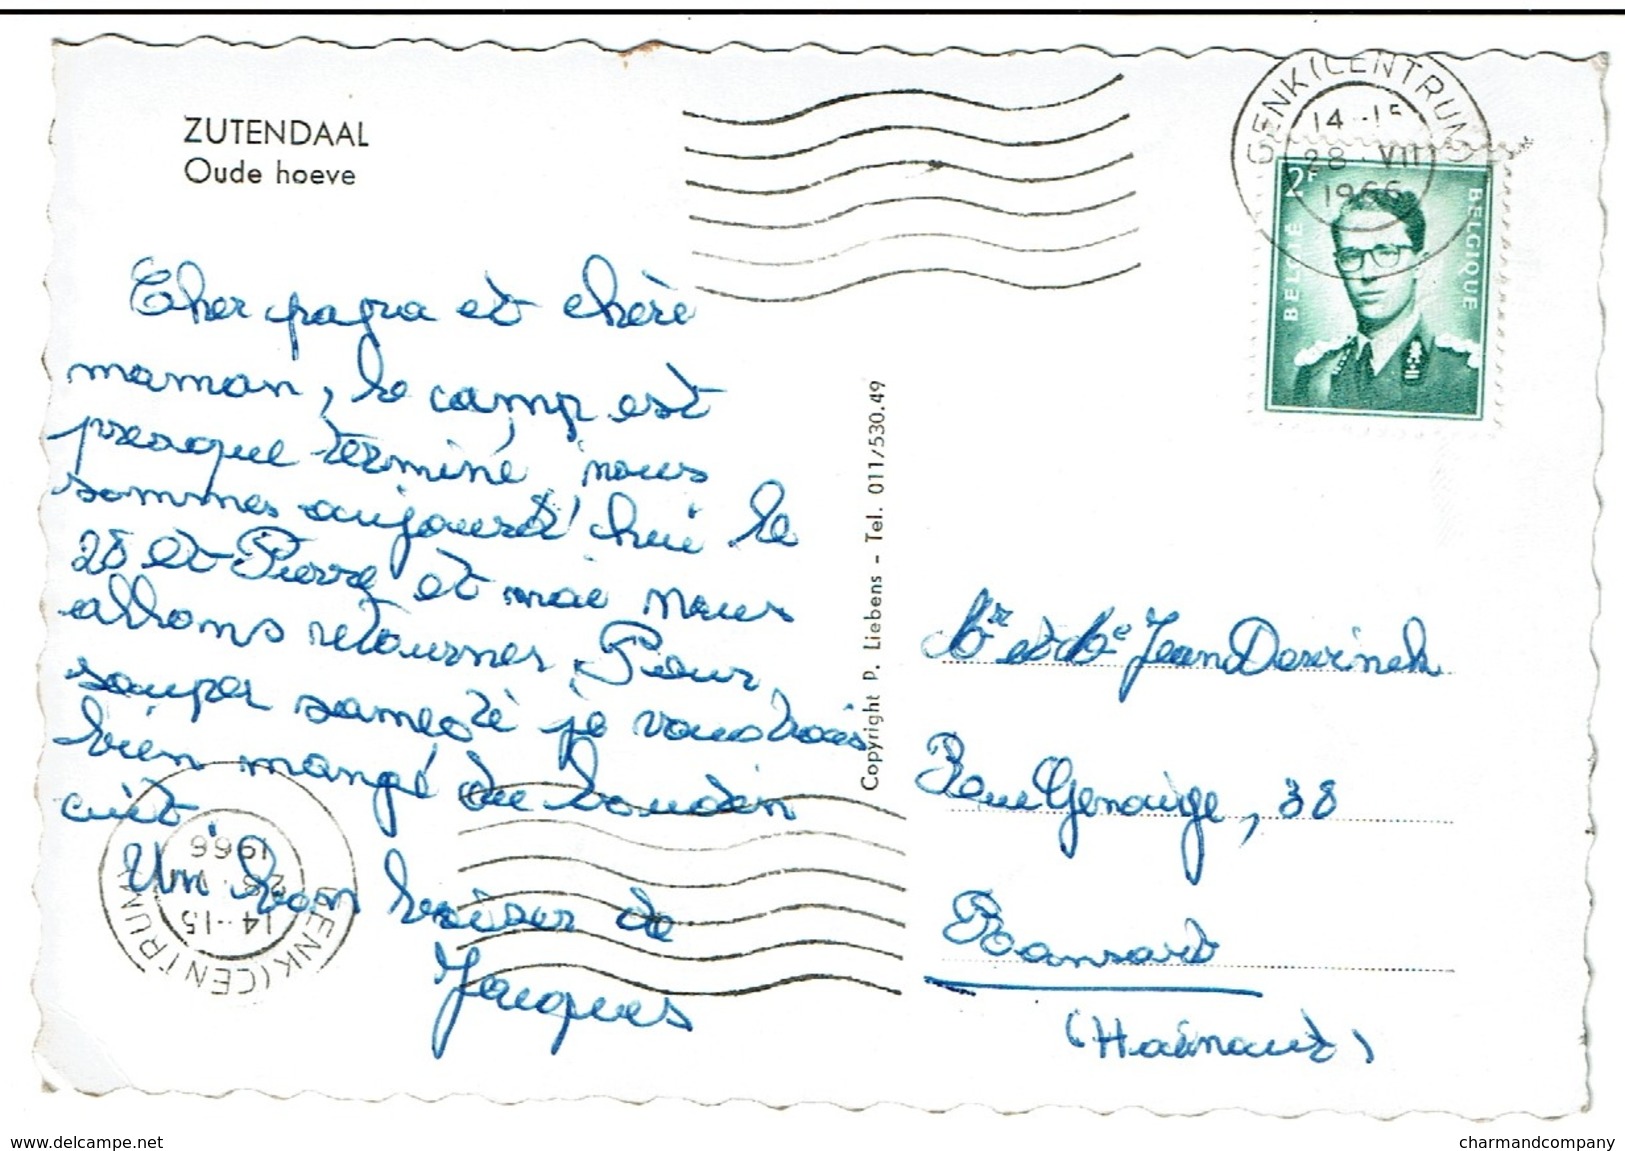 ZUTENDAAL
Oude hoeve
Cher papa et chère
maman, le camp est
presque terminé, nous
sommes aujourd'hui le
28 et Pierre et moi nous
allons retourner. Pour
souper samedi je voudrais
bien mangé du boudin
cuit.
Un bon baiser de
Jacques
Copyright P. Liebens - Tel. 011/530.49
GENK (CENTRUM)
14--15
28 · VII
1966
2F
BELGIË
BELGIQUE
Mr et Me Jean
Rue 38
Ransart
(Hainaut)
GENK (CENTRUM)
14--15
28
1966
www.delcampe.net
charmandcompany